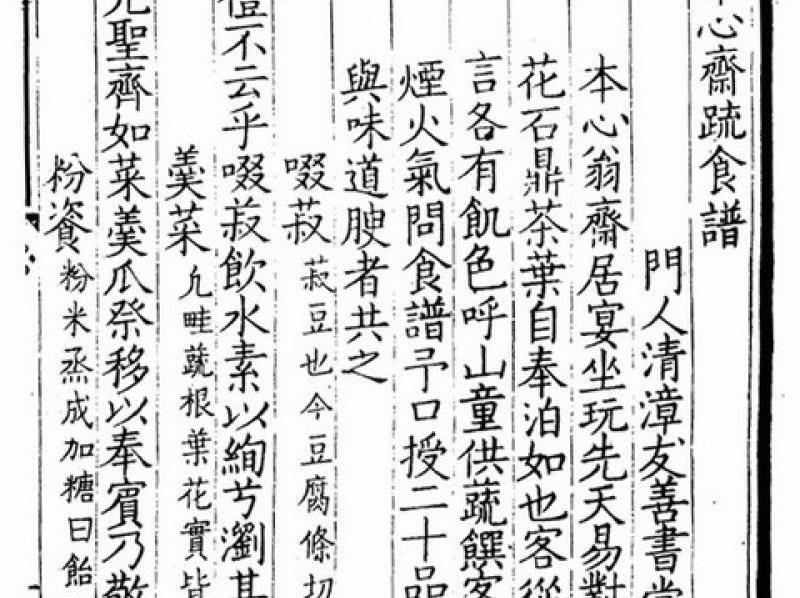 心齋蔬食譜
門人清漳友善書堂
本心翁齋居宴坐玩先天易對
花石鼎茶葉自奉泊如也客從
言各有飢色呼山童供蔬饌客
煙火氣問食譜予口授二十品
與味道腴者共之
啜菽菽豆也今豆腐條切
不云乎啜菽飲水素以絢兮瀏其
羹菜凡畦蔬根葉花實皆
聖齊如菜羹瓜祭移以奉賓乃敬
粉餈粉米烝成加糖曰飴